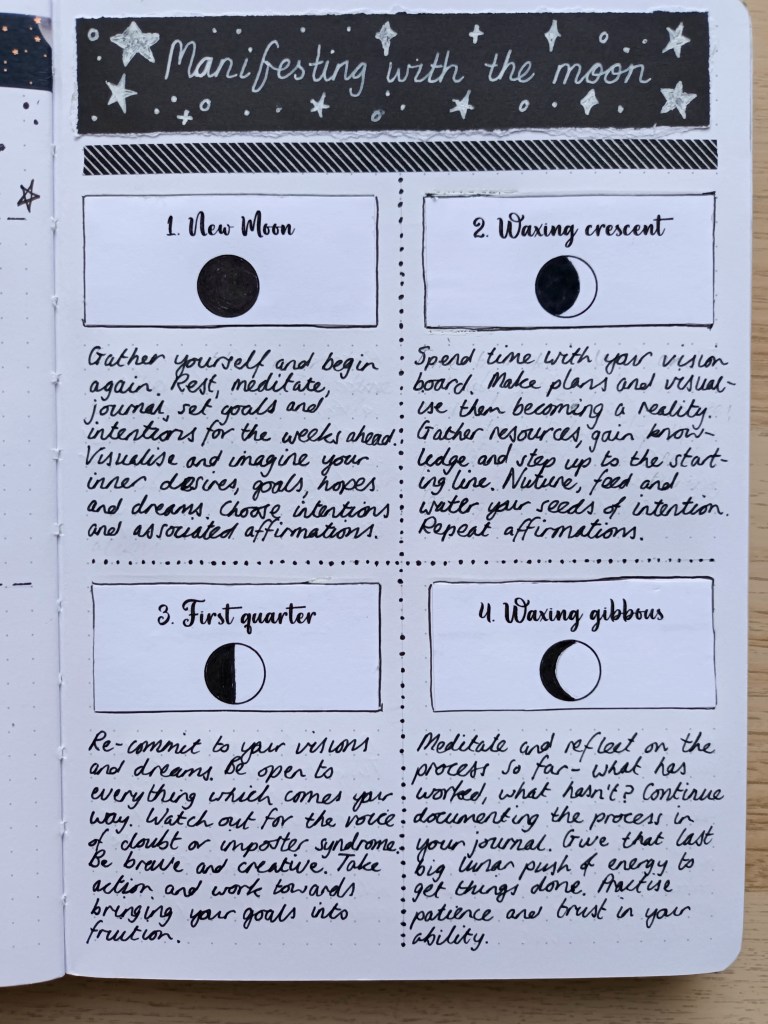 Manifesting with the moon
1. New Moon
Gather yourself and begin
again. Rest, meditate,
journal, set goals and
intentions for the weeks ahead.
Visualise and imagine your
inner desires, goals, hopes
and dreams. Choose intentions
and associated affirmations.
2. Waxing crescent
Spend time with your vision
board. Make plans and visual-
ise them becoming a reality.
Gather resources, gain know-
ledge and step up to the start-
ing line. Nuture, feed and
water your seeds of intention.
Repeat affirmations.
3. First quarter
Re-commit to your visions
and dreams. Be open to
everything which comes your
way. Watch out for the voice
of doubt or imposter syndrome.
Be brave and creative. Take
action and work towards
bringing your goals into
fruition.
4. Waxing gibbous
Meditate and reflect on the
process so far- what has
worked, what hasn't? Continue
documenting the process in
your journal. Give that last
big lunar push of energy to
get things done. Practise
patience and trust in your
ability.